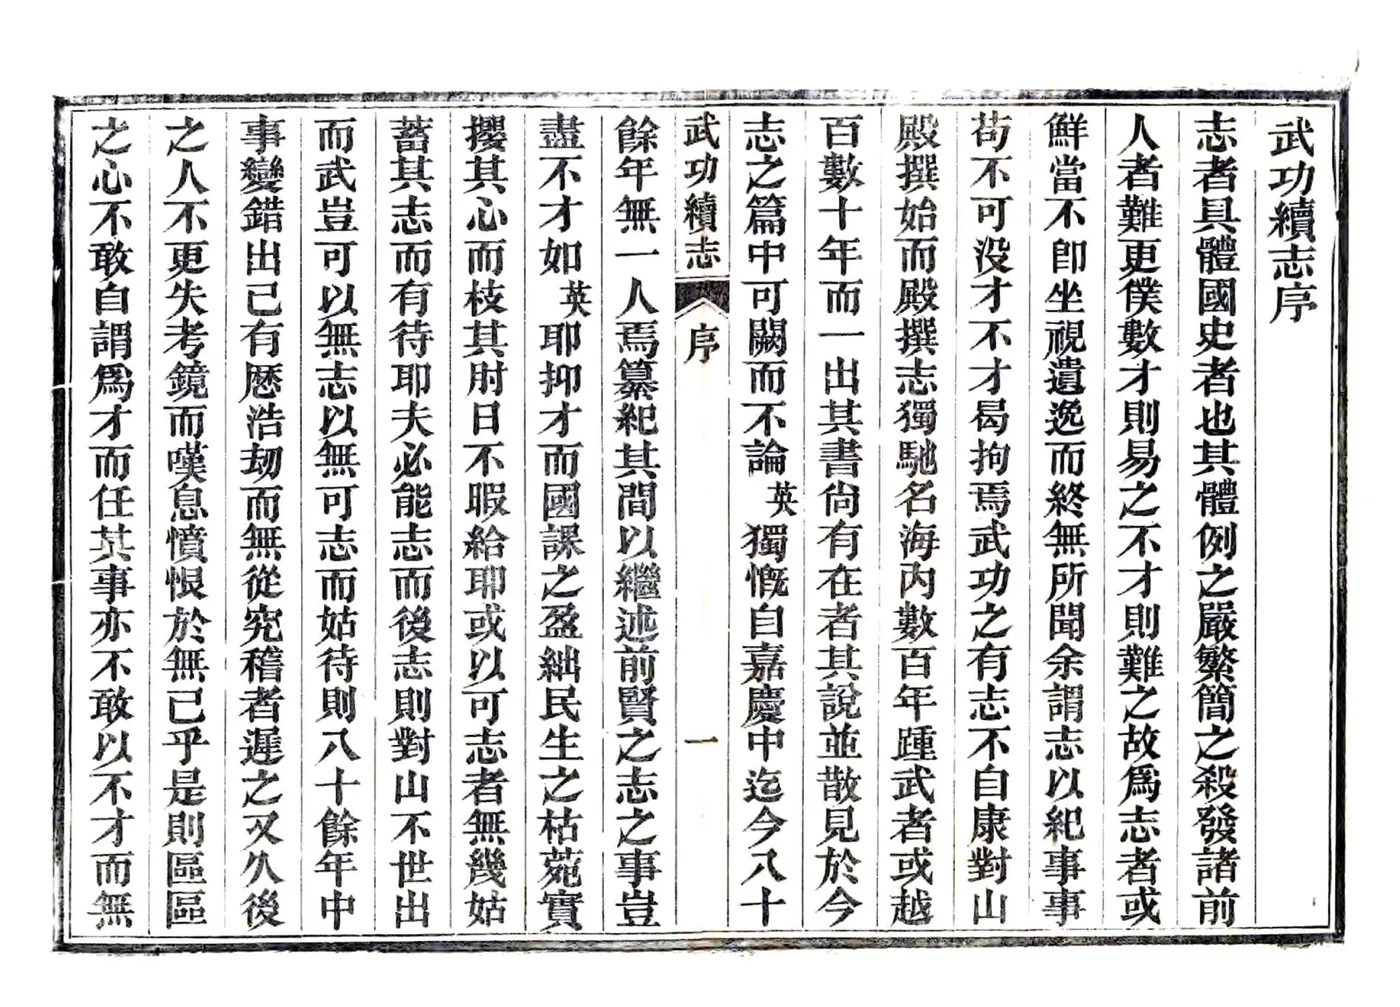 武功續志序
志者具體國史者也其體例之嚴繁簡之殺發諸前
人者難更僕數才則易之不才則難之故爲志者或
鮮當不卽坐視遺逸而終無所聞余謂志以紀事事
苟不可没才不才曷拘焉武功之有志不自康對山
殿撰始而殿撰志獨馳名海内數百年踵武者或越
百數十年而一出其書尙有在者其說並散見於今
志之篇中可闕而不論英獨慨自嘉慶中迄今八十
武功續志 序 一
餘年無一人焉纂紀其間以繼述前賢之志之事豈
盡不才如英耶抑才而國課之盈絀民生之枯菀實
攖其心而枝其肘日不暇給耶或以可志者無幾姑
蓄其志而有待耶夫必能志而後志則對山不世出
而武豈可以無志以無可志而姑待則八十餘年中
事變錯出已有歷浩刼而無從究稽者遲之又久後
之人不更失考鏡而嘆息憤恨於無已乎是則區區
之心不敢自謂爲才而任其事亦不敢以不才而無